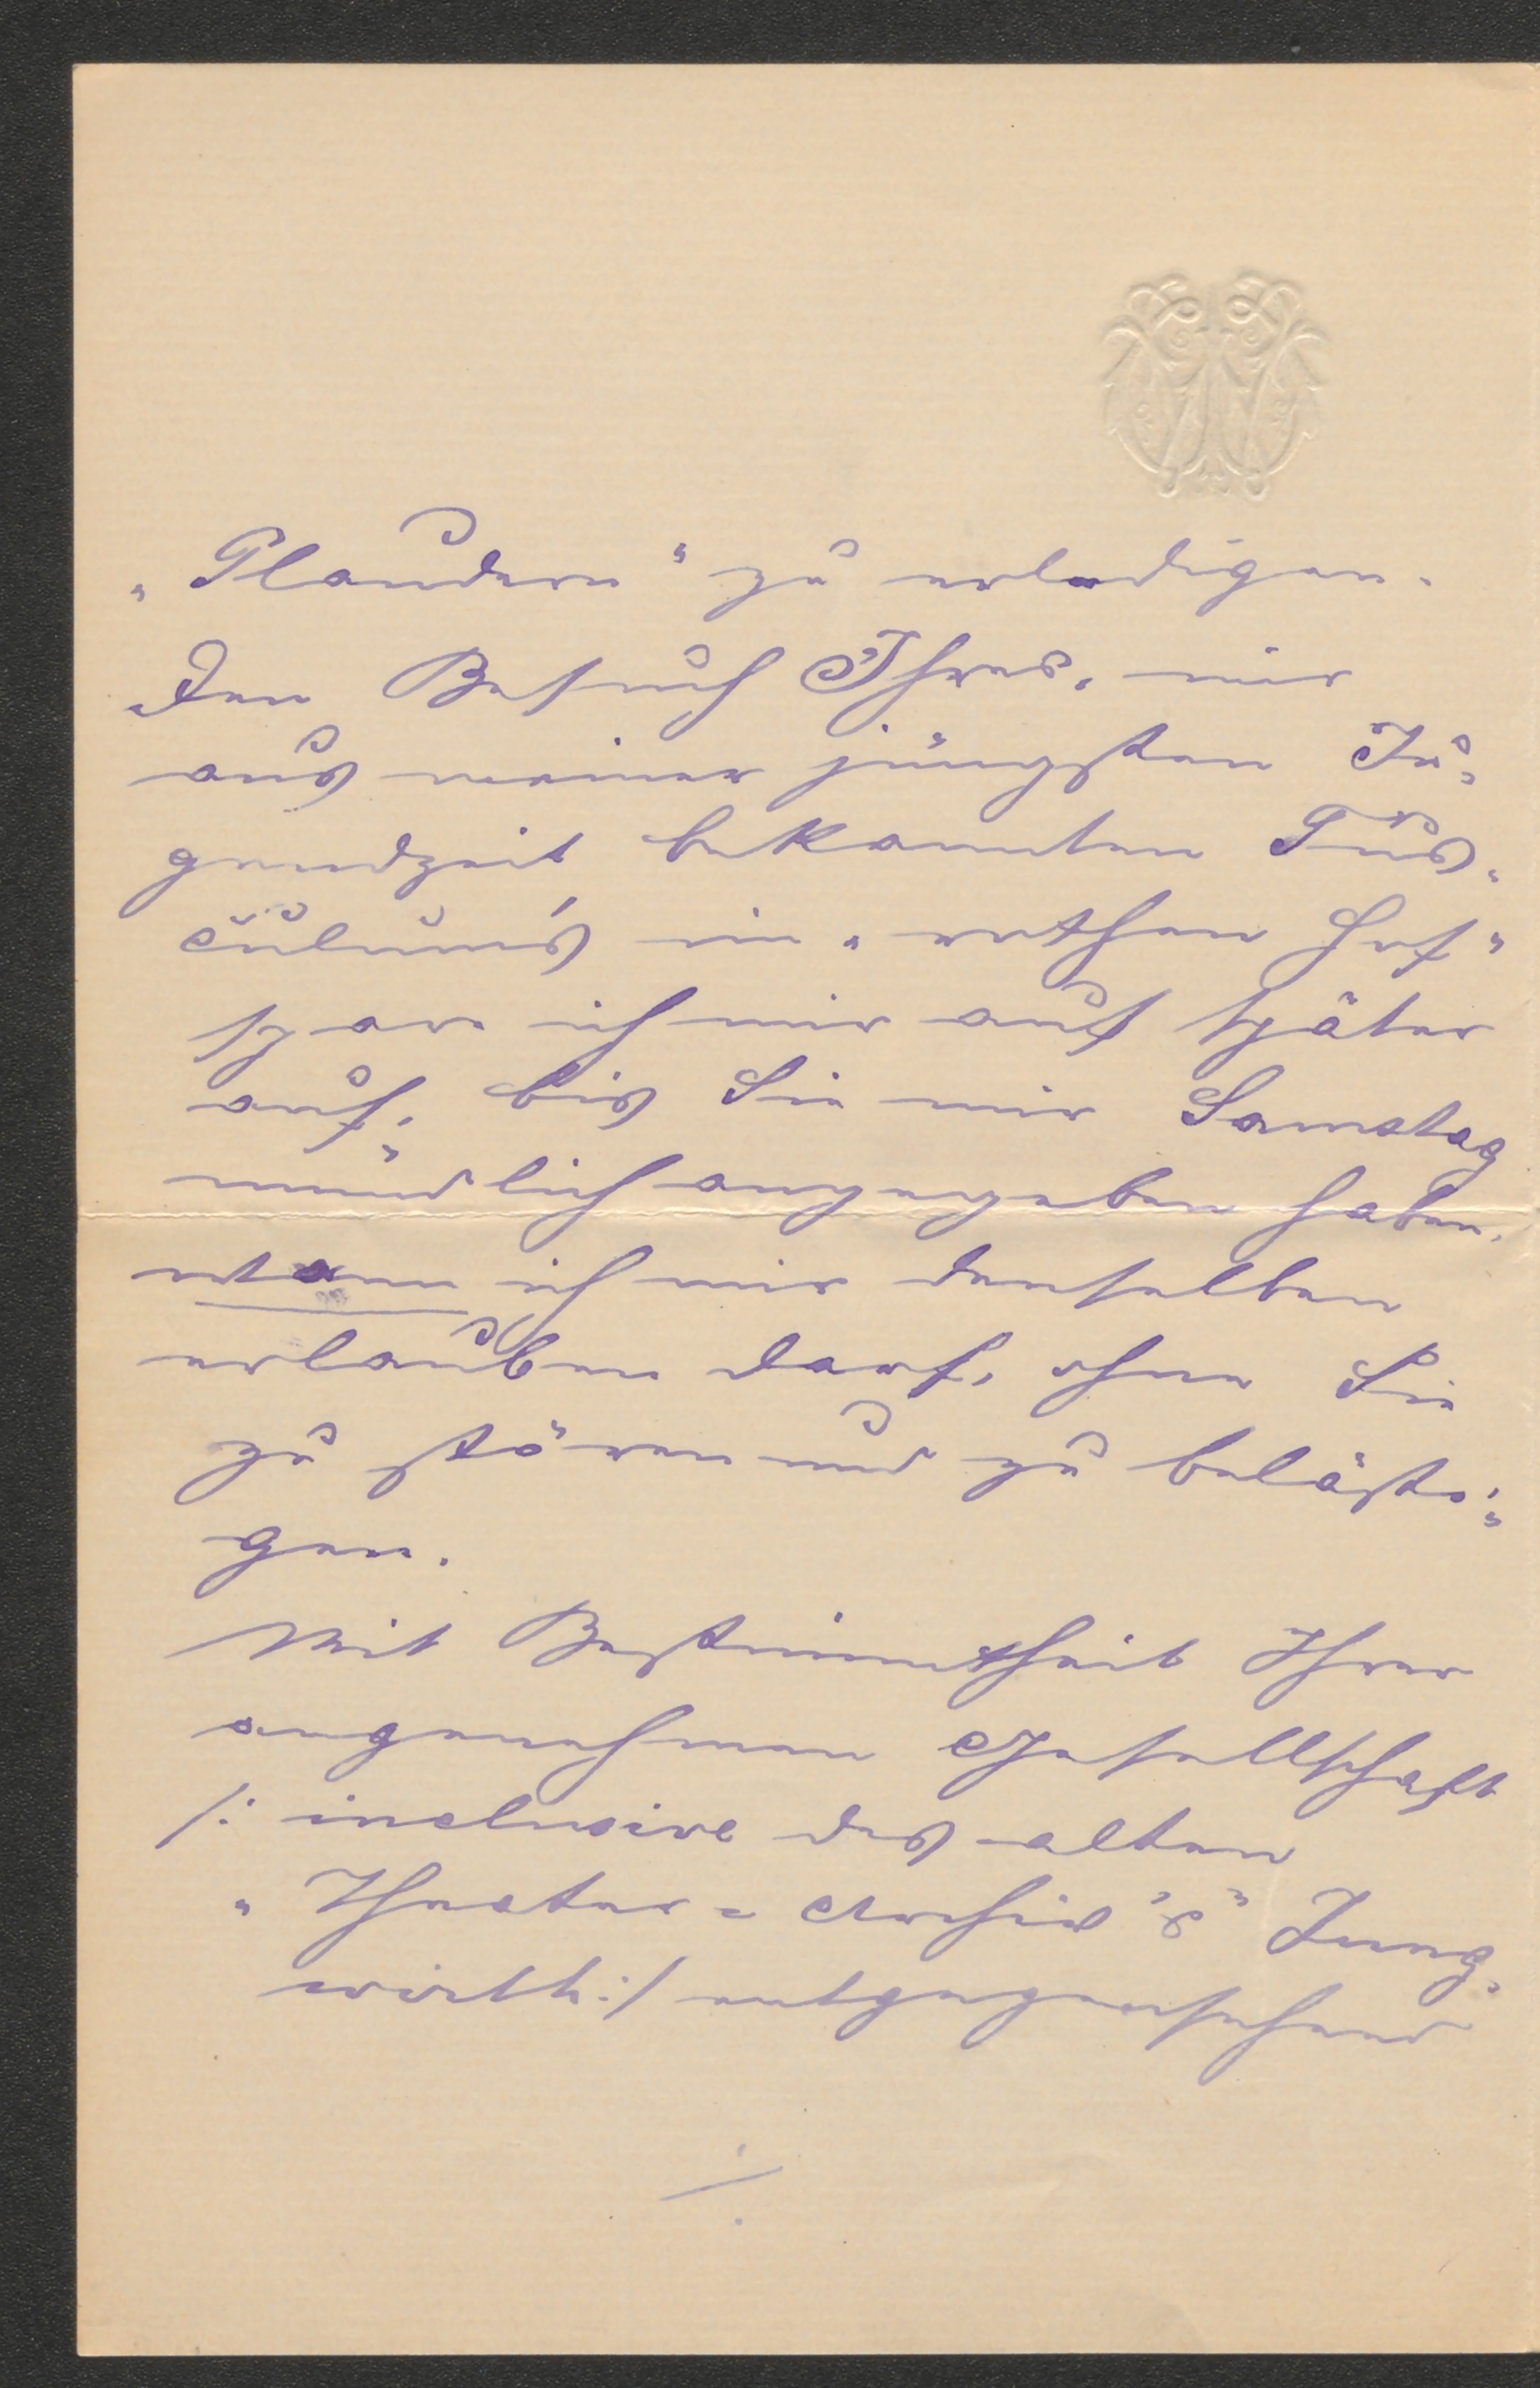 „Plaudern“ zu erledigen.
Den Besuch Ihres, mir
aus meiner jüngsten Ju-
gendzeit bekannten Tus-
culum's im „rothen Hof“
spare ich mir auf später
auf; bis Sie mir Samstag
mündlich angegeben haben,
wann ich mir denselben
erlauben darf, ohne Sie
zu stören und zu belästi-
gen.
Mit Bestimmtheit Ihrer
angenehmen Gesellschaft
/: inclusive des alten
„Theater-Archiv's“ Jung-
wirth :/ entgegensehend
./.